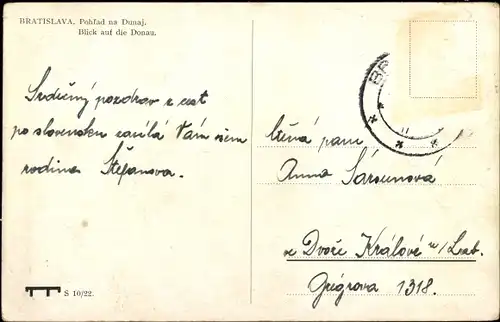 BRATISLAVA. Pohľad na Dunaj.
Blick auf die Donau.
Srdečný pozdrav z cest
po slovensku zasílá Vám všem
rodina Štefanova.
BR
Ctěná paní
Anna Sárounová
ve Dvoře Králové n/Lab.
Grégrova 1318.
S 10/22.